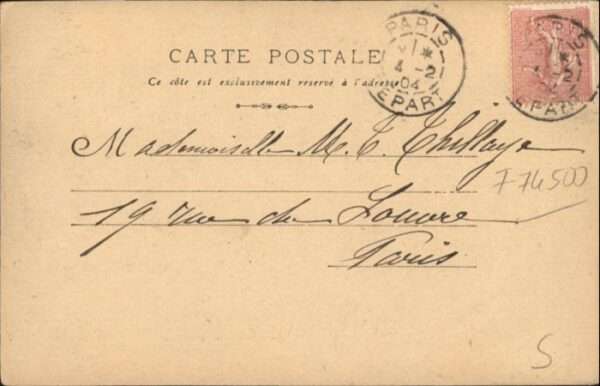 CARTE POSTALE
Ce côté est exclusivement réservé à l'adresse
PARIS
VI *
4 - 2
04
DEPART
PARIS
*
4 - 2
DEPART
Mademoiselle M. T. Thillaye
7-74500
19 rue du Louvre
Paris
S